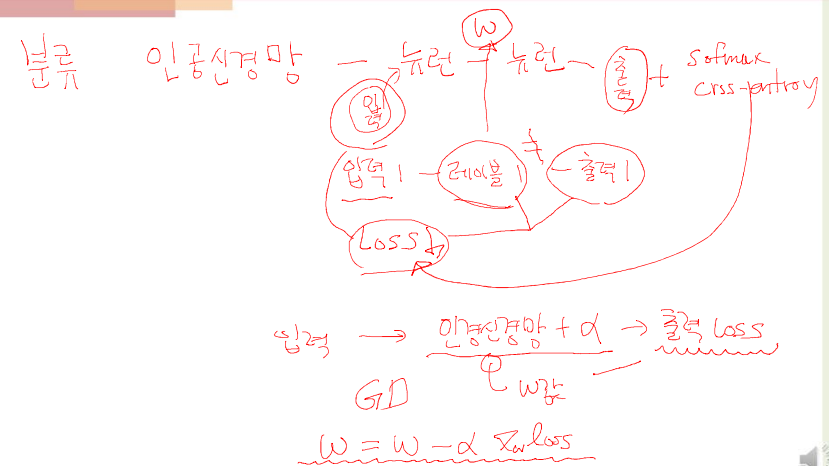 W
분류 인공신경망 - 뉴런 - 뉴런 - 출력 + softmax
crss-entroy
입력
입력1 - 레이블1 ≠ - 출력1
Loss
입력 → 인경신경망 + α → 출력 Loss
W값
GD
W = W - α ∇w loss